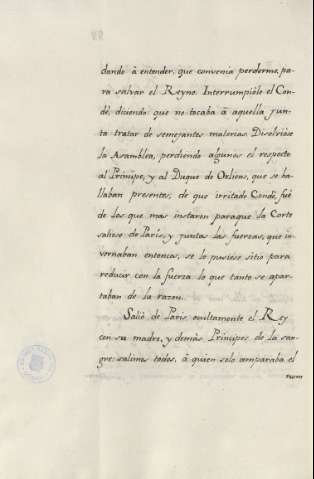 dando à entender, que convenia perderme, pa-
ra salvar el Reyno. Interrumpióle el Con-
dè, diciendo que no tocaba à aquella jun-
ta tratar de semejantes materias. Disolvióse
la Asamblea, perdiendo algunos el respeto
al Principe, y al Duque de Orliens, que se ha-
llaban presentes; de que irritado Condè, fué
de los que mas instaron paraque la Corte
saliese de París, y juntas las fuerzas, que in-
vernaban entonces, se le pusiese sitio para
reducir con la fuerza lo que tanto se apar-
taban de la razon.
Salió de París ocultamente el Rey
con su madre, y demàs Principes de la san-
gre: salimos todos, à quien solo amparaba el